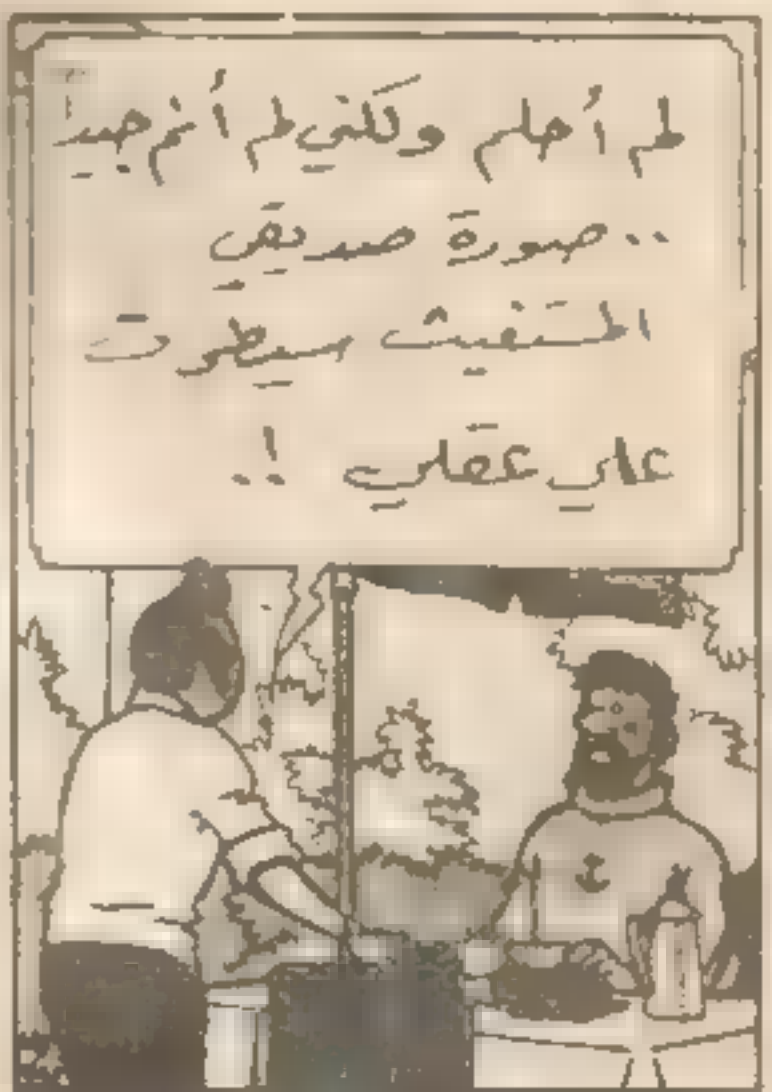 لم أحلم ولكني لم أنم جيدا
.. صورة صديقي
المستغيث سيطرت
علي عقلي !..